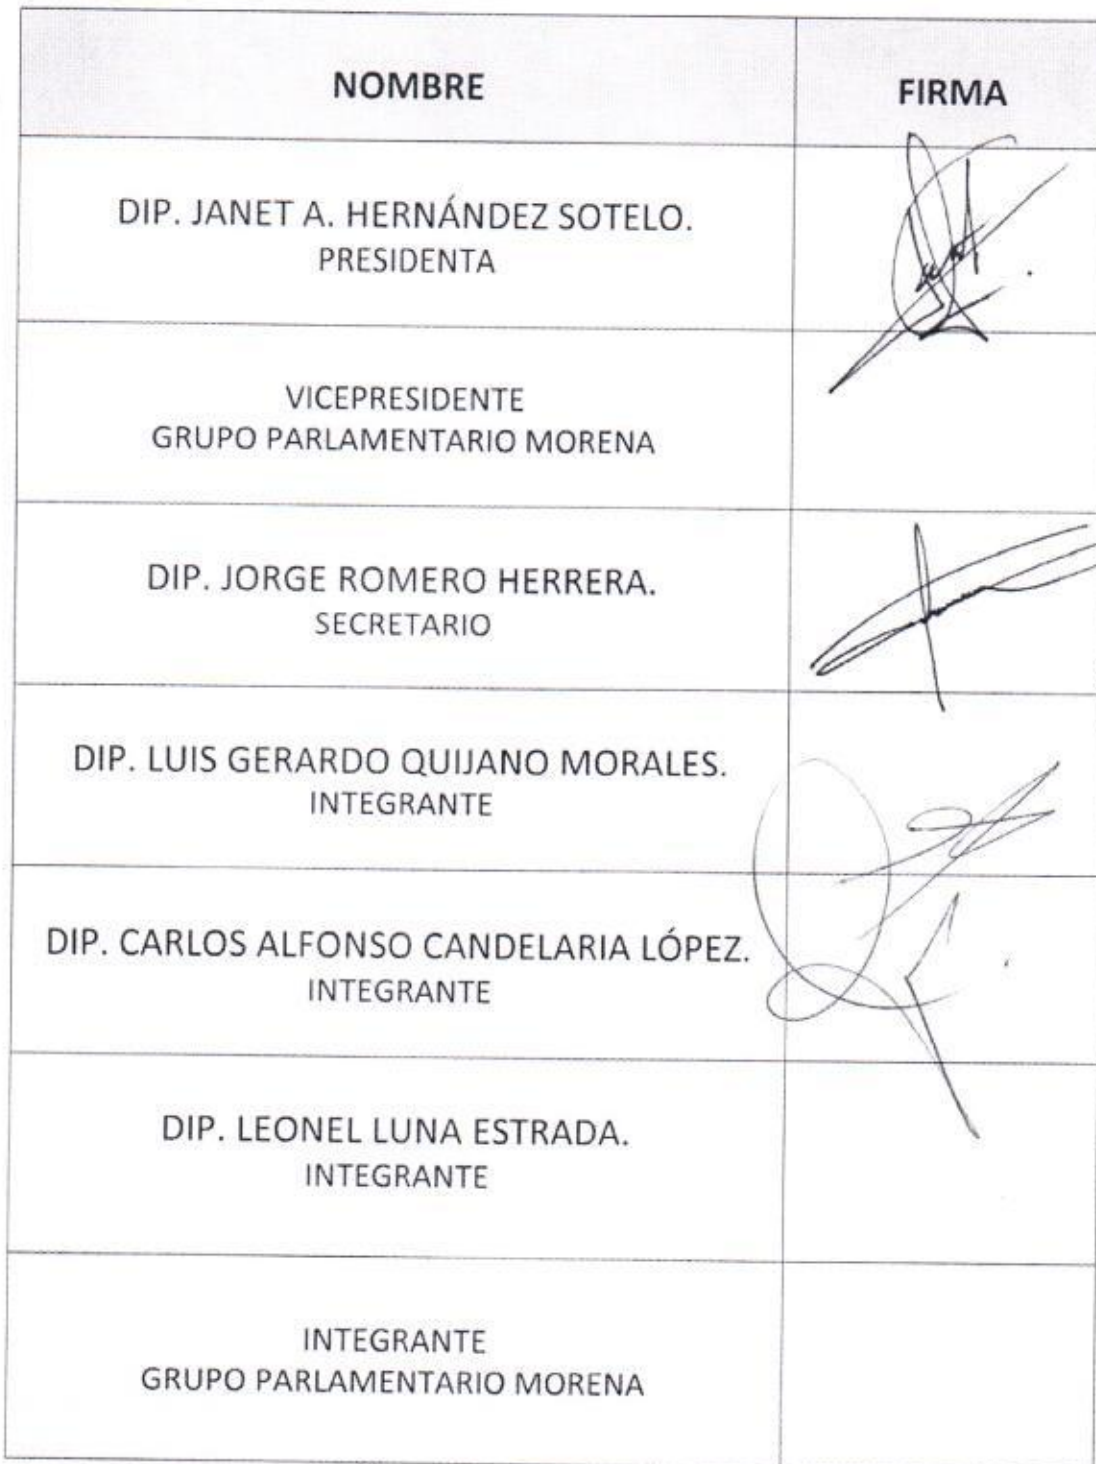 NOMBRE
FIRMA
DIP. JANET A. HERNÁNDEZ SOTELO.
PRESIDENTA
VICEPRESIDENTE
GRUPO PARLAMENTARIO MORENA
DIP. JORGE ROMERO HERRERA.
SECRETARIO
DIP. LUIS GERARDO QUIJANO MORALES.
INTEGRANTE
DIP. CARLOS ALFONSO CANDELARIA LÓPEZ.
INTEGRANTE
DIP. LEONEL LUNA ESTRADA.
INTEGRANTE
INTEGRANTE
GRUPO PARLAMENTARIO MORENA